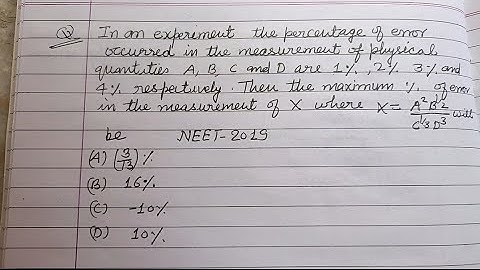 Q In an experiment the percentage of error
occurred in the measurement of physical
quantities A, B, C and D are 1%, 2% 3% and
4% respectively. Then the maximum % of error
in the measurement of X where X = A²B^1/2 / C^1/3 D³ will
be NEET-2019
(A) (3/13)%
(B) 16%
(C) -10%
(D) 10%